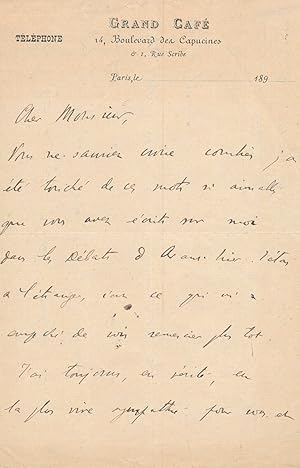 GRAND CAFÉ
TÉLÉPHONE
14, Boulevard des Capucines
& 1, Rue Scribe
Paris, le 189
Cher Monsieur,
Vous ne sauriez croire combien j'ai
été touché de ces mots si aimables
que vous avez écrits sur moi
dans les Débats d'avant-hier. J'étais
à l'étranger, c'est ce qui m'a
empêché de vous remercier plus tôt.
J'ai toujours, en vérité, eu
la plus vive sympathie pour vous et